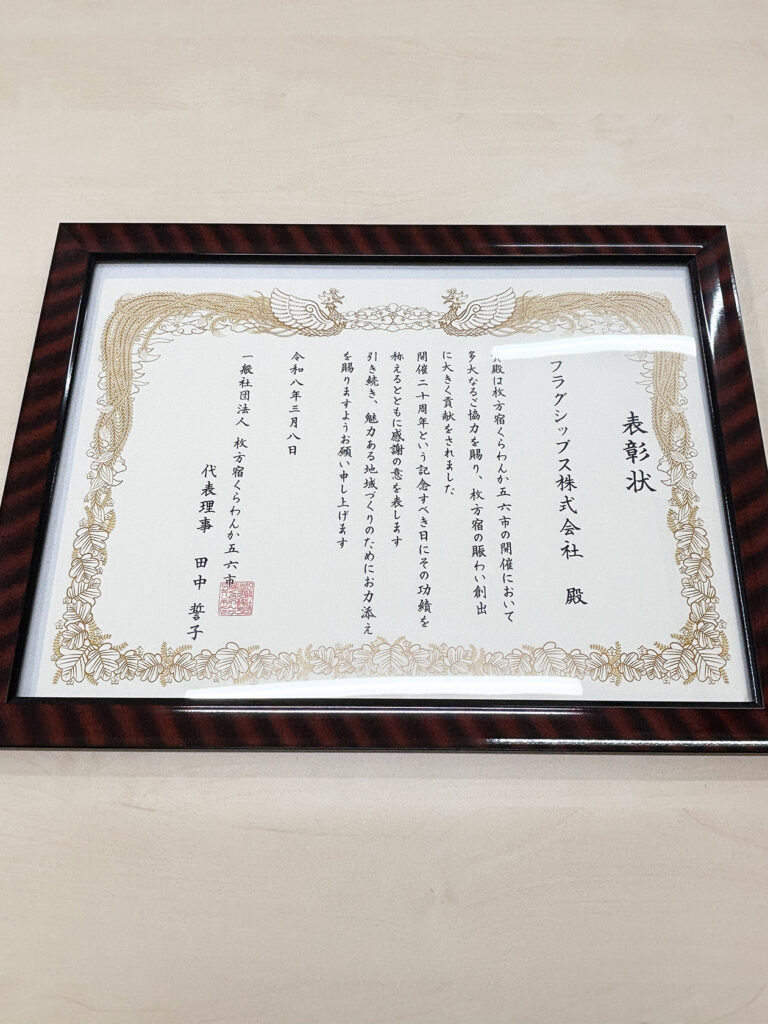 表彰状
フラグシップス株式会社 殿
殿は枚方宿くらわんか五六市の開催において
多大なるご協力を賜り、枚方宿の賑わい創出
に大きく貢献をされました
開催二十周年という記念すべき日にその功績を
称えるとともに感謝の意を表します
引き続き、魅力ある地域づくりのためにお力添え
を賜りますようお願い申し上げます
令和八年三月八日
一般社団法人 枚方宿くらわんか五六市
代表理事 田中 誓子